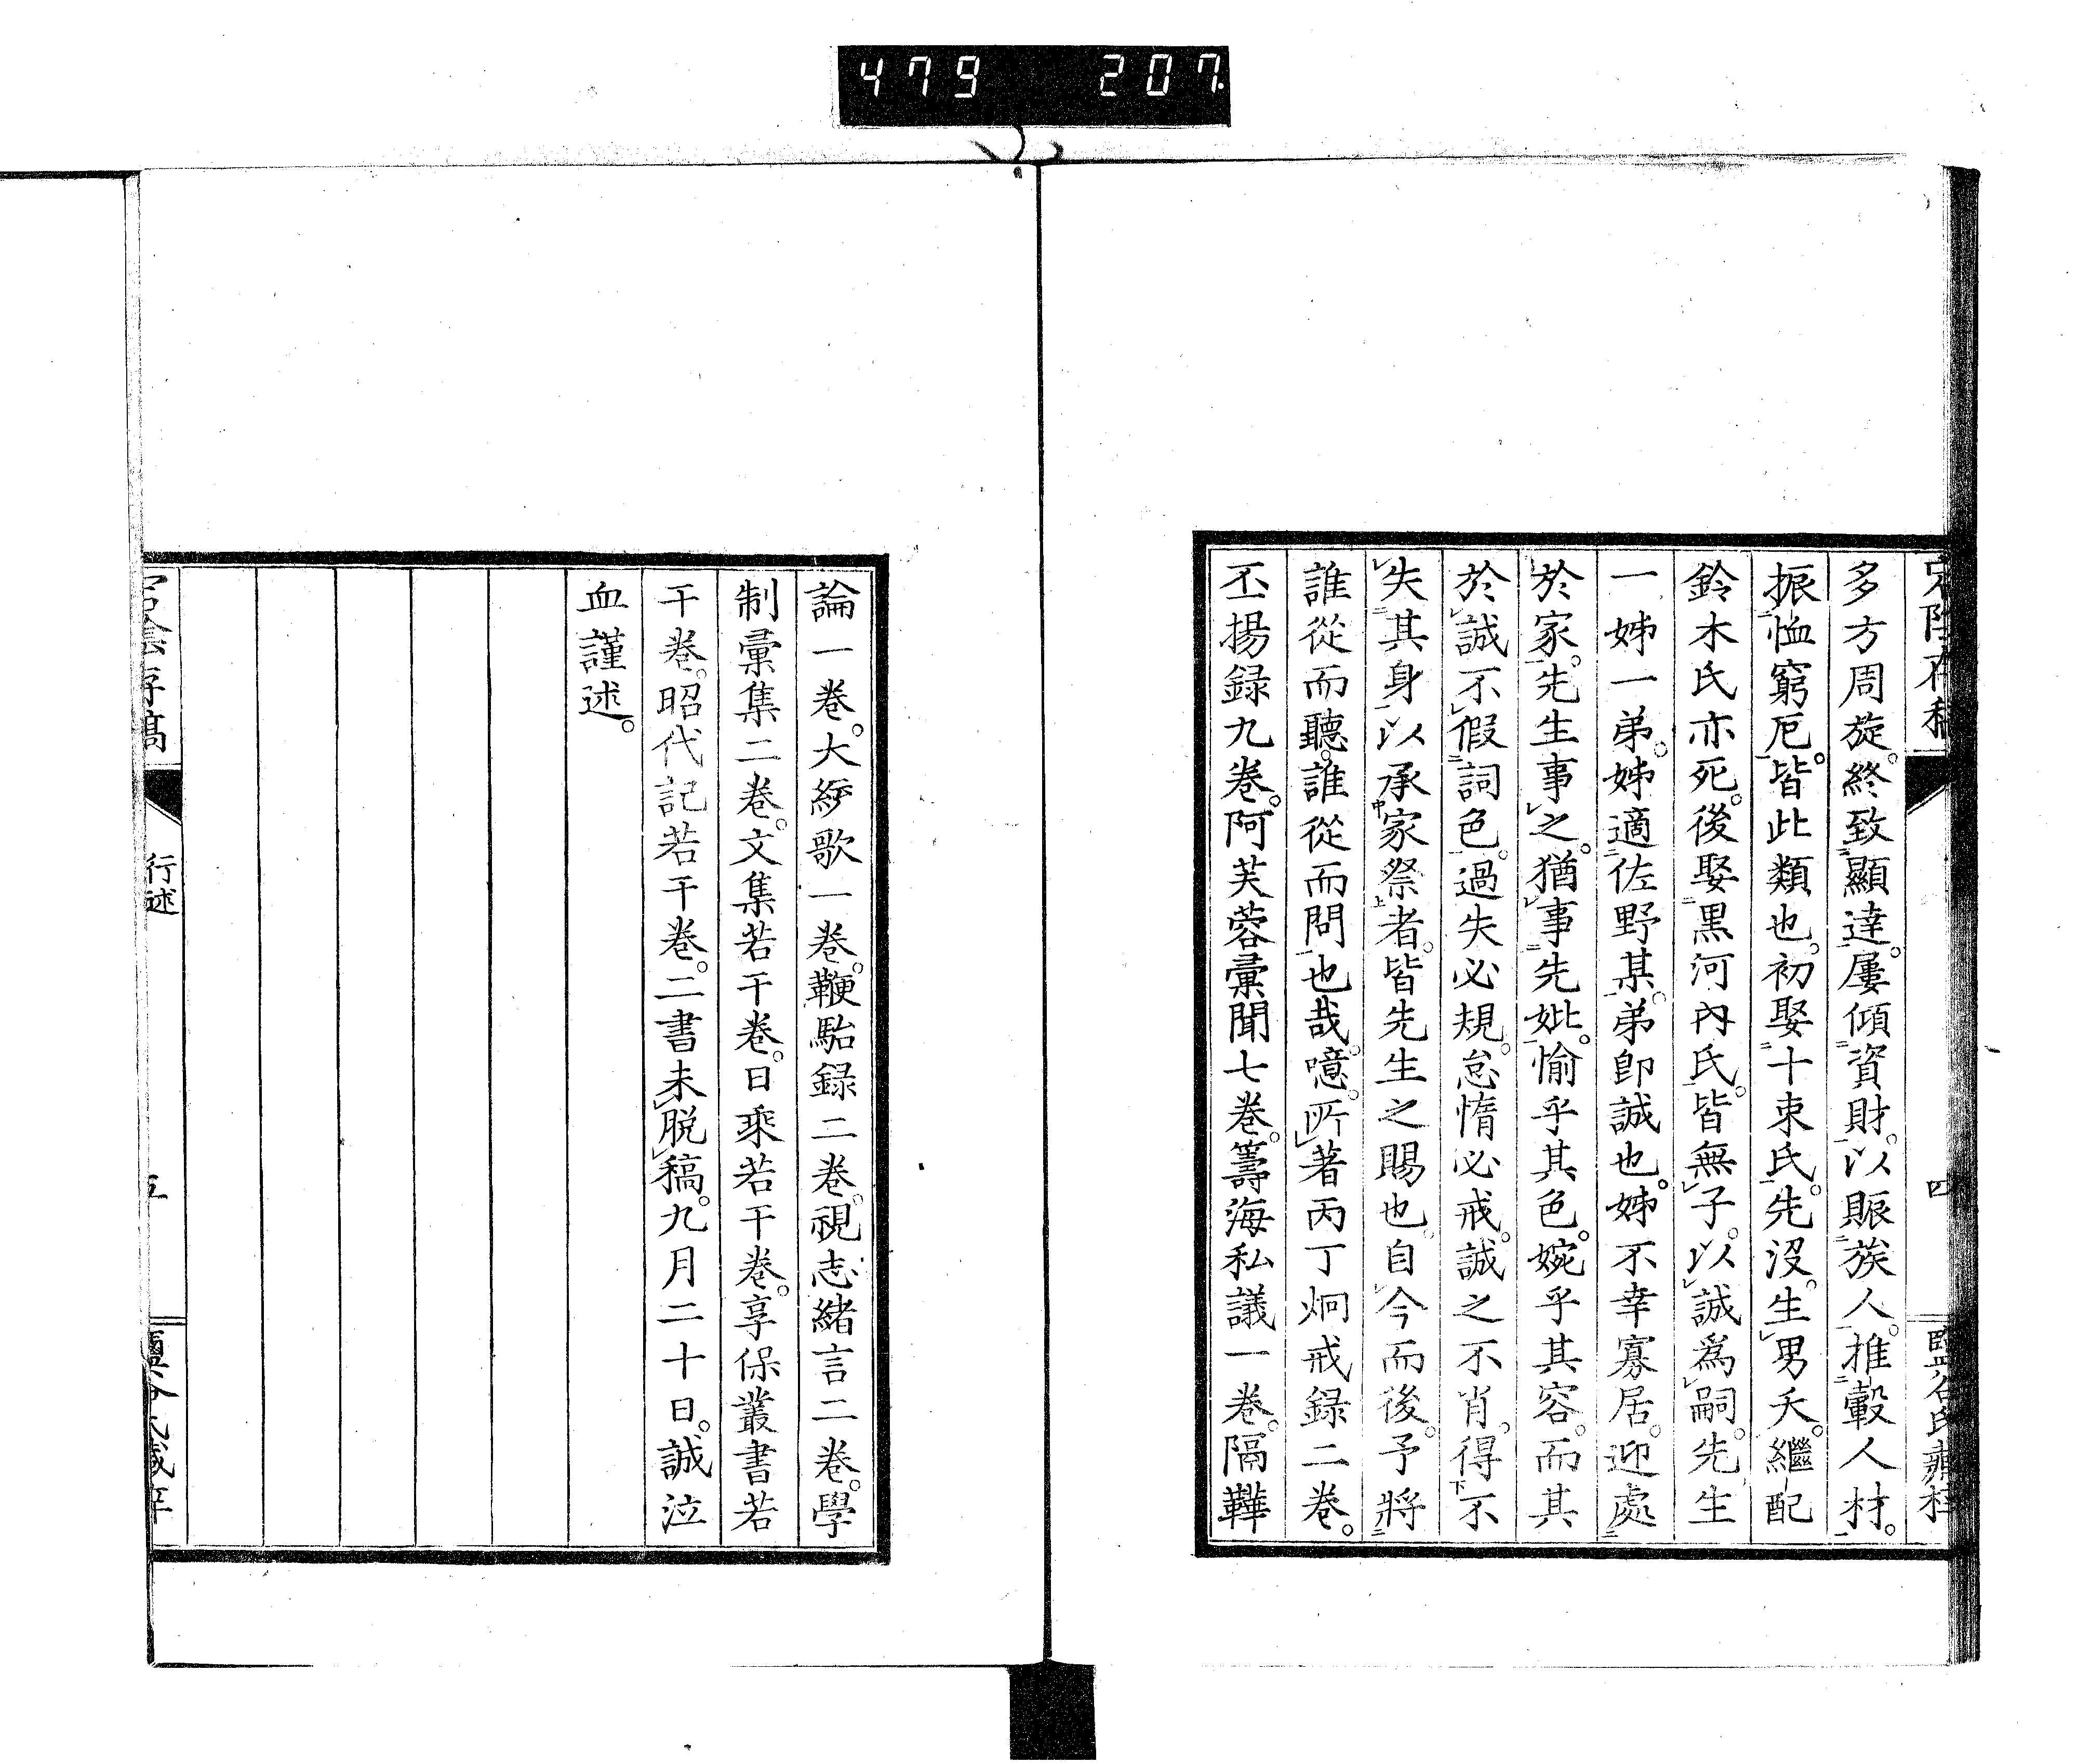 479 207.
四
多方周旋。終致顯達。屢傾資財。以賑族人。推轂人材。
振恤窮厄。皆此類也。初娶十束氏。先沒。生男夭。繼配
鈴木氏亦死。後娶黒河內氏。皆無子。以誠爲嗣。先生
一姊一弟。姊適佐野某。弟卽誠也。姊不幸寡居。迎處
於家。先生事之。猶事先妣。愉乎其色。婉乎其容。而其
於誠不假詞色。過失必規。怠惰必戒。誠之不肖。得不
失其身以承家祭者。皆先生之賜也。自今而後。予將
誰從而聽。誰從而問也哉。噫。所著丙丁炯戒録二卷。
丕揚録九卷。阿芙蓉彙聞七卷。籌海私議一卷。隔鞾
論一卷。大統歌一卷。鞭駘録二卷。視志緒言二卷。學
制彙集二卷。文集若干卷。日乘若干卷。享保叢書若
干卷。昭代記若干卷。二書未脱稿。九月二十日。誠泣
血謹述。
行述
五